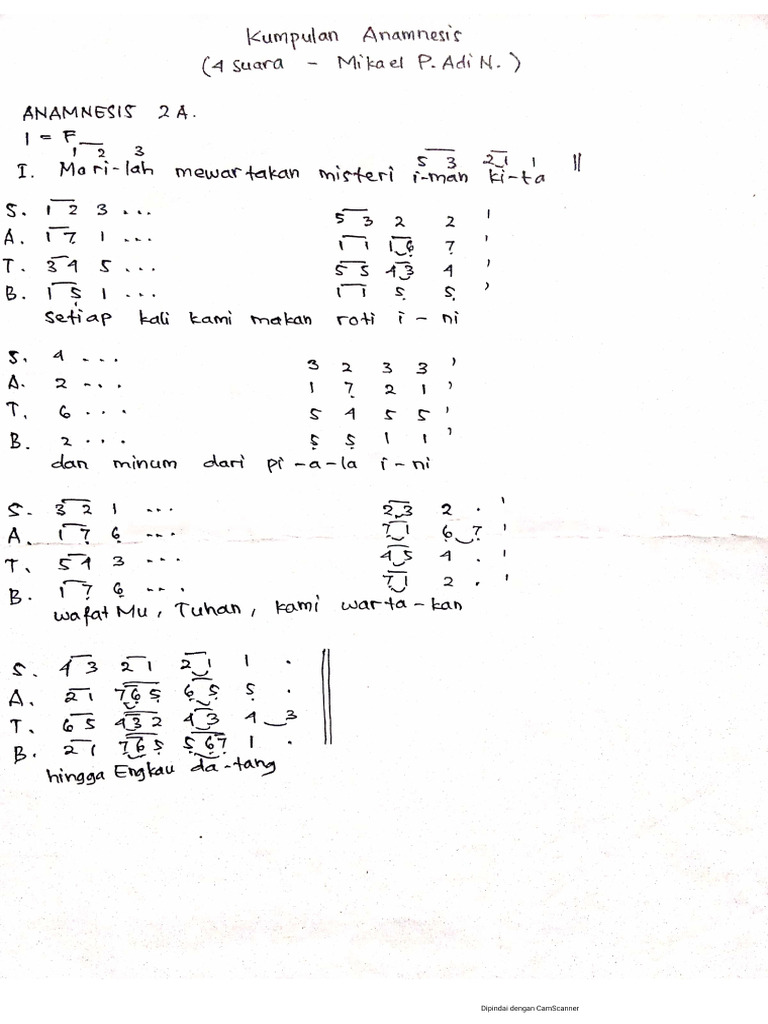 Kumpulan Anamnesis
(4 suara - Mikael P. Adi N.)
ANAMNESIS 2A.
1 = F
1 2 3 5 3 2 1 1
I. Mari-lah mewartakan misteri i-man ki-ta ||
S. 1 2 3 ... 5 3 2 2 '
A. 1 7̣ 1 ... 1 1 1 6̣ 7̣ '
T. 3 4 5 ... 5 5 4 3 4 '
B. 1 5̣ 1 ... 1 1 5̣ 5̣ '
setiap kali kami makan roti i - ni
S. 4 ... 3 2 3 3 '
A. 2 ... 1 7̣ 2 1 '
T. 6 ... 5 4 5 5 '
B. 2 ... 5̣ 5̣ 1 1 '
dan minum dari pi-a-la i-ni
S. 3 2 1 ... 2 3 2 . '
A. 1 7̣ 6̣ ... 7̣ 1 6̣ 7̣ '
T. 5 4 3 ... 4 5 4 . '
B. 1 7̣ 6̣ ... 7̣ 1 2 . '
wafat Mu, Tuhan, kami warta-kan
S. 4 3 2 1 2 1 1 . ||
A. 2 1 7̣ 6̣ 5̣ 6̣ 5̣ 5̣ .
T. 6 5 4 3 2 4 3 4 3
B. 2 1 7̣ 6̣ 5̣ 5̣ 6̣ 7̣ 1 .
hingga Engkau da-tang
Dipindai dengan CamScanner